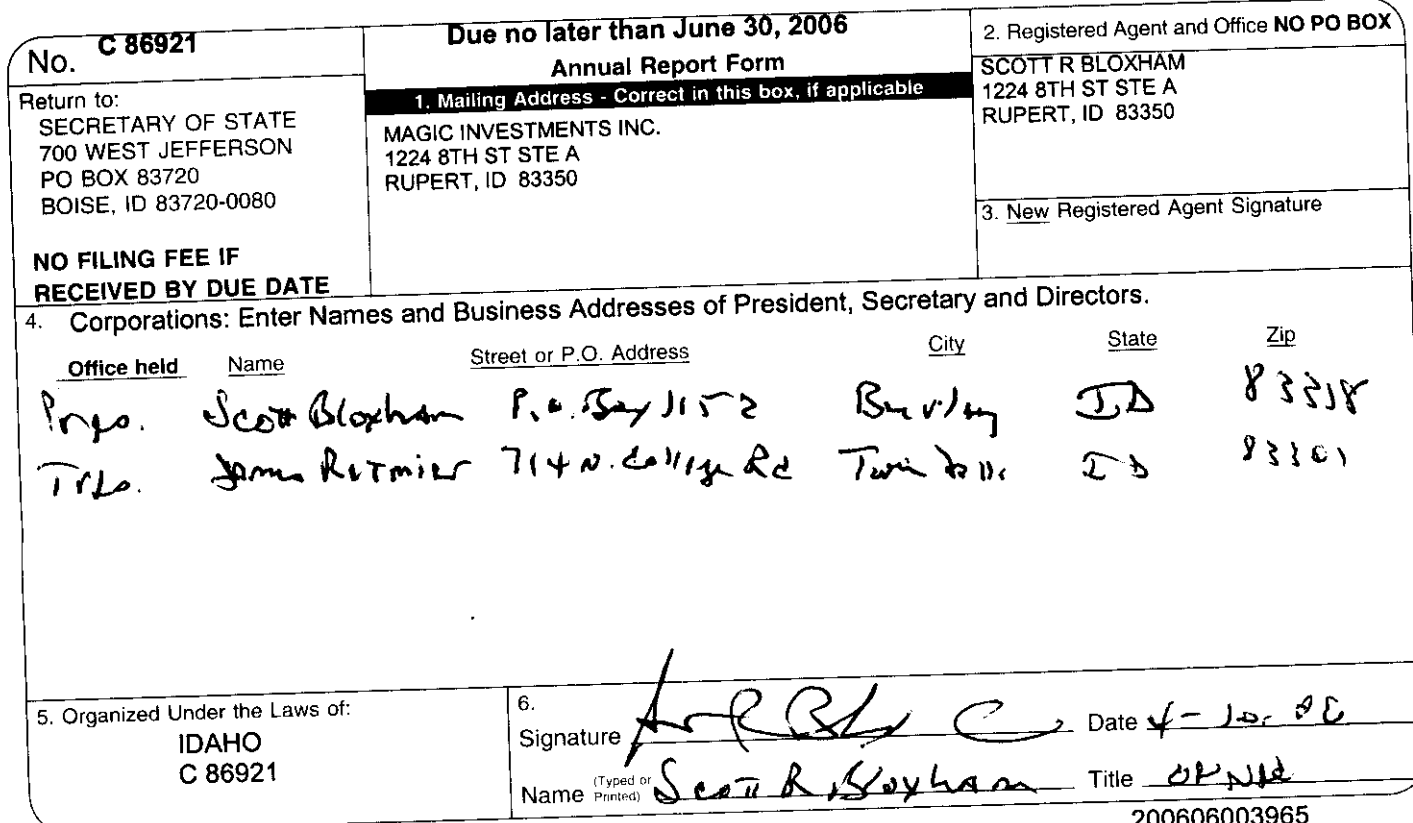 No. C 86921
Return to:
SECRETARY OF STATE
700 WEST JEFFERSON
PO BOX 83720
BOISE, ID 83720-0080
NO FILING FEE IF
RECEIVED BY DUE DATE
Due no later than June 30, 2006
Annual Report Form
1. Mailing Address - Correct in this box, if applicable
MAGIC INVESTMENTS INC.
1224 8TH ST STE A
RUPERT, ID 83350
2. Registered Agent and Office NO PO BOX
SCOTT R BLOXHAM
1224 8TH ST STE A
RUPERT, ID 83350
3. New Registered Agent Signature
4. Corporations: Enter Names and Business Addresses of President, Secretary and Directors.
Office held Name Street or P.O. Address City State Zip
Pres. Scott Bloxham P.O. Box 1152 Burley ID 83318
James 714 N. College Rd Twin Falls ID 83301
5. Organized Under the Laws of:
IDAHO
C 86921
6.
Signature Date 4-10-06
Name (Typed or Printed) Scott R Bloxham Title
200606003965